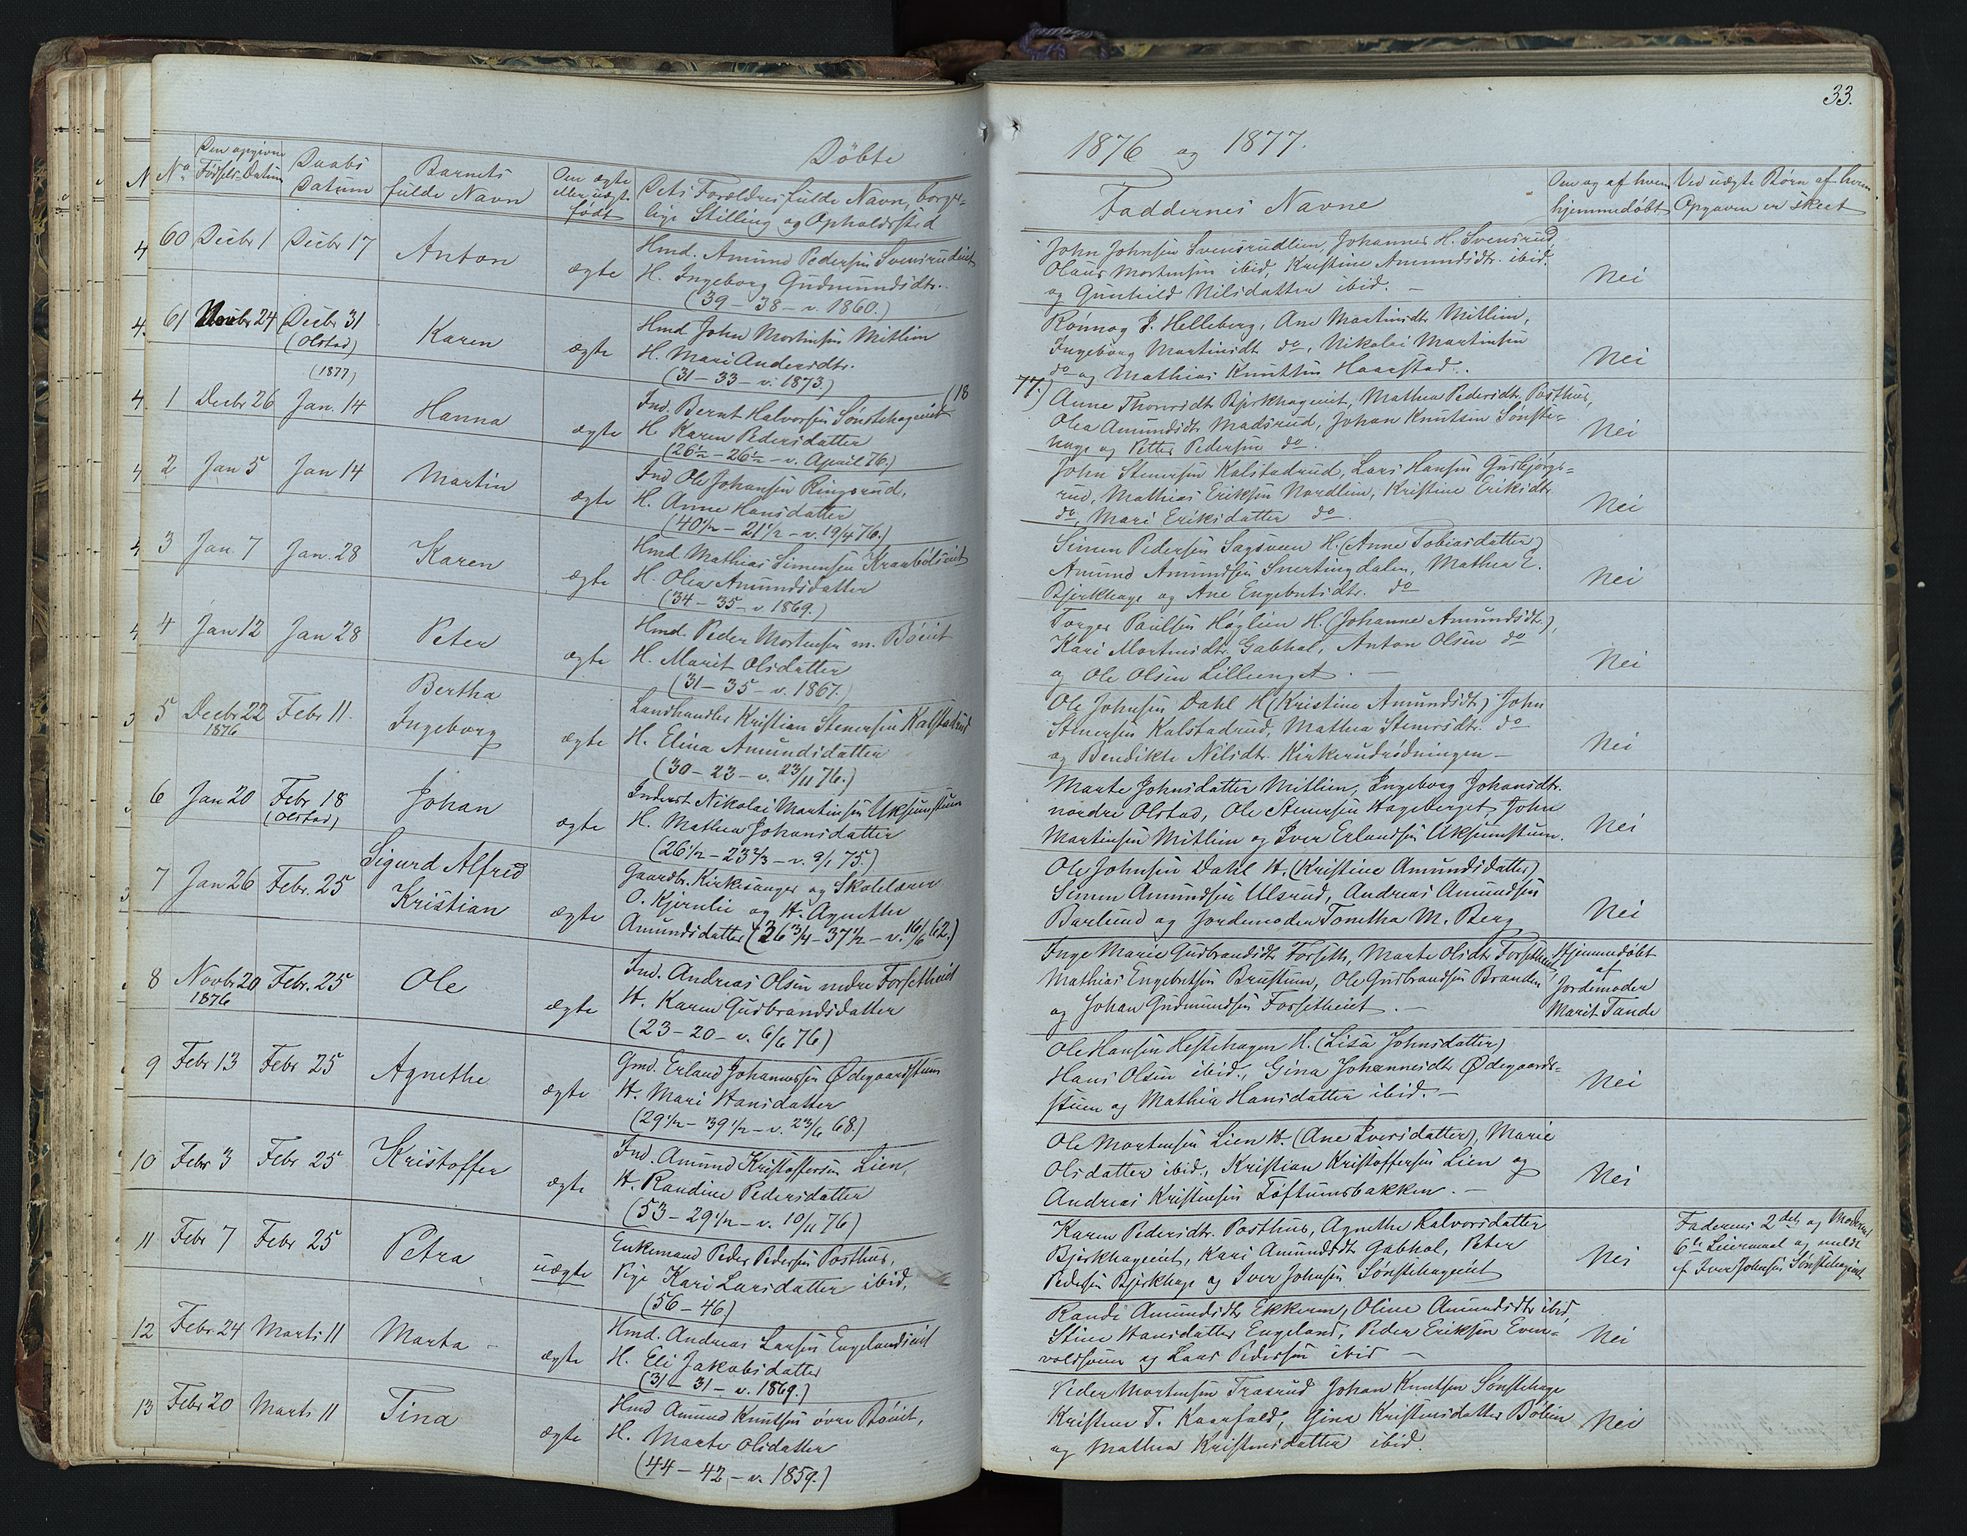 33.
Döbte
1876 og 1877.
No
Den opgivne Födsels-Datum
Daabs Datum
Barnets fulde Navn
Om ægte eller uægte födt
Dets Forældres fulde Navn, borgerlige Stilling og Opholdssted
Faddernes Navne
Om og af hvem hjemmedöbt
Ved uægte Börn af hvem Opgaven er skeet
60 Decbr 1 Decbr 17 Anton ægte
Hmd. Amund Pedersen Svensrudeiet
H. Ingeborg Gudmundsdtr.
(39 - 38 - v. 1860.)
John Johnsen Svensrudlien, Johannes H. Svensrud,
Olaus Mortensen ibid, Kristine Amundsdtr. ibid.
og Gunhild Nilsdatter ibid. -
Nei
61 Novbr 24 Decbr 31 (Olstad) Karen ægte
Hmd John Mortensen Mitlien
H. Mari Andersdtr.
(31 - 33 - v. 1873.)
Rönnog J. Helleberg, Ane Martinsdtr Mitlien,
Ingeborg Martinsdt do, Nikolai Martinsen
do og Mathias Knutsen Haarstad.
Nei
(1877)
(18
77.)
1 Decbr 26 Jan. 14 Hanna ægte
Ind. Bernt Halvorsen Sönstehageneiet
H. Karen Pedersdatter
(26 1/2 - 26 1/2 - v. April 76.)
Anne Thorsdt Bjerkhageneiet, Mathea Pedersdt. Posthus,
Olea Amundsdt Madsrud, Johan Knutsen Sönste-
hage og Petter Pedersen do.
Nei
2 Jan 5 Jan 14 Martin ægte
Ind Ole Johansen Ringsrud,
H. Anne Hansdatter
(40 1/2 - 21 1/2 - v. 19/4 76.)
John Stenersen Kalstadrud, Lars Hansen Gudbjörgs-
rud, Mathias Eriksen Nordlien, Kristine Eriksdtr.
do, Mari Eriksdatter do.
Nei
3 Jan. 7 Jan. 28 Karen ægte
Hmd Mathias Simensen Kraabölseiet
H. Olea Amundsdatter
(34 - 35 - v. 1869.)
Simen Pedersen Sagsveen H. (Anne Tobiasdatter)
Amund Amundsen Snertingdalen, Mathea E.
Bjerkhage og Ane Engebretsdtr. do
Nei
4 Jan 12 Jan 28 Peter ægte
Hmd. Peder Mortensen m. Böeiet
H. Marit Olsdatter
(31 - 35 - v. 1867.)
Torger Paulsen Höglien H. (Johanne Amundsdt.),
Kari Mortensdt. Gabhol, Anton Olsen do
og Ole Olsen Lillienget. -
Nei
5 Decbr 22 1876 Febr 11. Bertha Ingeborg ægte
Landhandler Kristian Stenersen Kalstadrud
H. Elina Amundsdatter
(30 - 23 - v. 23/11 76.)
Ole Johnsen Dahl H (Kristine Amundsdt.) John
Stenersen Kalstadrud, Mathea Stenersdt. do
og Bendikte Nilsdt. Kirkerudrödningen -
Nei
6 Jan 20 Febr 18 (Olstad) Johan ægte
Inderst Nikolai Martinsen Uksumstuen
H. Mathea Johansdatter
(26 1/2 - 23 2/3 - v. 9/1 75.)
Marte Johnsdatter Mitlien, Ingeborg Johansdtr.
nordre Olstad, Ole Stenersen Hageberget, John
Martinsen Mitlien og Iver Erlandsen Uksumstuen.
Nei
7 Jan 26 Febr. 25 Sigurd Alfred Kristian ægte
Gaardbr. Kirksanger og Skolelærer
O. Kjernlie og H. Agnethe
Amundsdatter (36 3/4 - 37 1/2 - v. 16/6 62.)
Ole Johnsen Dahl H. (Kristine Amundsdatter)
Simen Amundsen Ulsrud, Andreas Amundsen
Barlund og Jordemoder Tonetha M. Berg
Nei
8 Novbr 20 1876 Febr. 25 Ole ægte
Ind. Andreas Olsen nedre Forsetheiet
H. Karen Gudbrandsdatter
(23 - 20 - v. 6/6 76)
Inge Marie Gudbrandsdt Forseth, Marte Olsdt. Forsetheiet,
Mathias Engebretsen Brustuen, Ole Gudbrandsen Branden
og Johan Gudmundsen Forsetheiet. -
Hjemmedöbt af Jordemoder Marit Tande
9 Febr 13 Febr 25 Agnethe ægte
Gmd. Erland Johannessen Ödegaardstuen
H. Mari Hansdatter
(29 1/2 - 39 1/2 - v. 23/6 68.)
Ole Hansen Hestehagen H. (Lisa Johnsdatter)
Hans Olsen ibid., Gina Johannesdt Ödegaards-
stuen og Mathea Hansdatter ibid. -
Nei
10 Febr 3 Febr 25 Kristoffer ægte
Ind. Amund Kristoffersen Lien,
H. Randine Pedersdatter
(53 - 29 1/2 - v. 10/11 76)
Ole Mortensen Lien H. (Ane Iversdatter), Marie
Olsdatter ibid., Kristian Kristoffersen Lien og
Andreas Kristensen Töftumsbakken. -
Nei
11 Febr 7 Febr 25 Petra uægte
Enkemand Peder Pedersen Posthus,
Pige Kari Larsdatter ibid,
(56 - 46)
Karen Pedersdt. Posthus, Agnethe Halvorsdatter
Bjerkhageeiet, Kari Amundsdt Gabhol, Peter
Pedersen Bjerkhage og Iver Johnsen Sönstehageeiet
Nei
Faderens 2det og Moderens
6te Leiermaal og meldt
af Iver Johnsen Sönstehageeiet
12 Febr. 24 Marts 11 Marta - ægte
Hmd. Andreas Larsen Engelandseiet
H. Eli Jakobsdatter
(31 - 31 - v. 1869.)
Randi Amundsdt Ekkern, Oline Amundsdt ibid,
Stine Hansdatter Engeland, Peder Eriksen Even-
voldsveen og Lars Pedersen ibid -
Nei
13 Febr 20 Marts 11 Tina ægte
Hmd Amund Knutsen övre Böeiet,
H. Marte Olsdatter
(44 - 42 - v. 1859.)
Peder Mortensen Trosrud, Johan Knutsen Sönstehage
Kristen T. Kaarfald, Gina Kristensdatter Bölien
og Mathea Kristensdatter ibid.
Nei